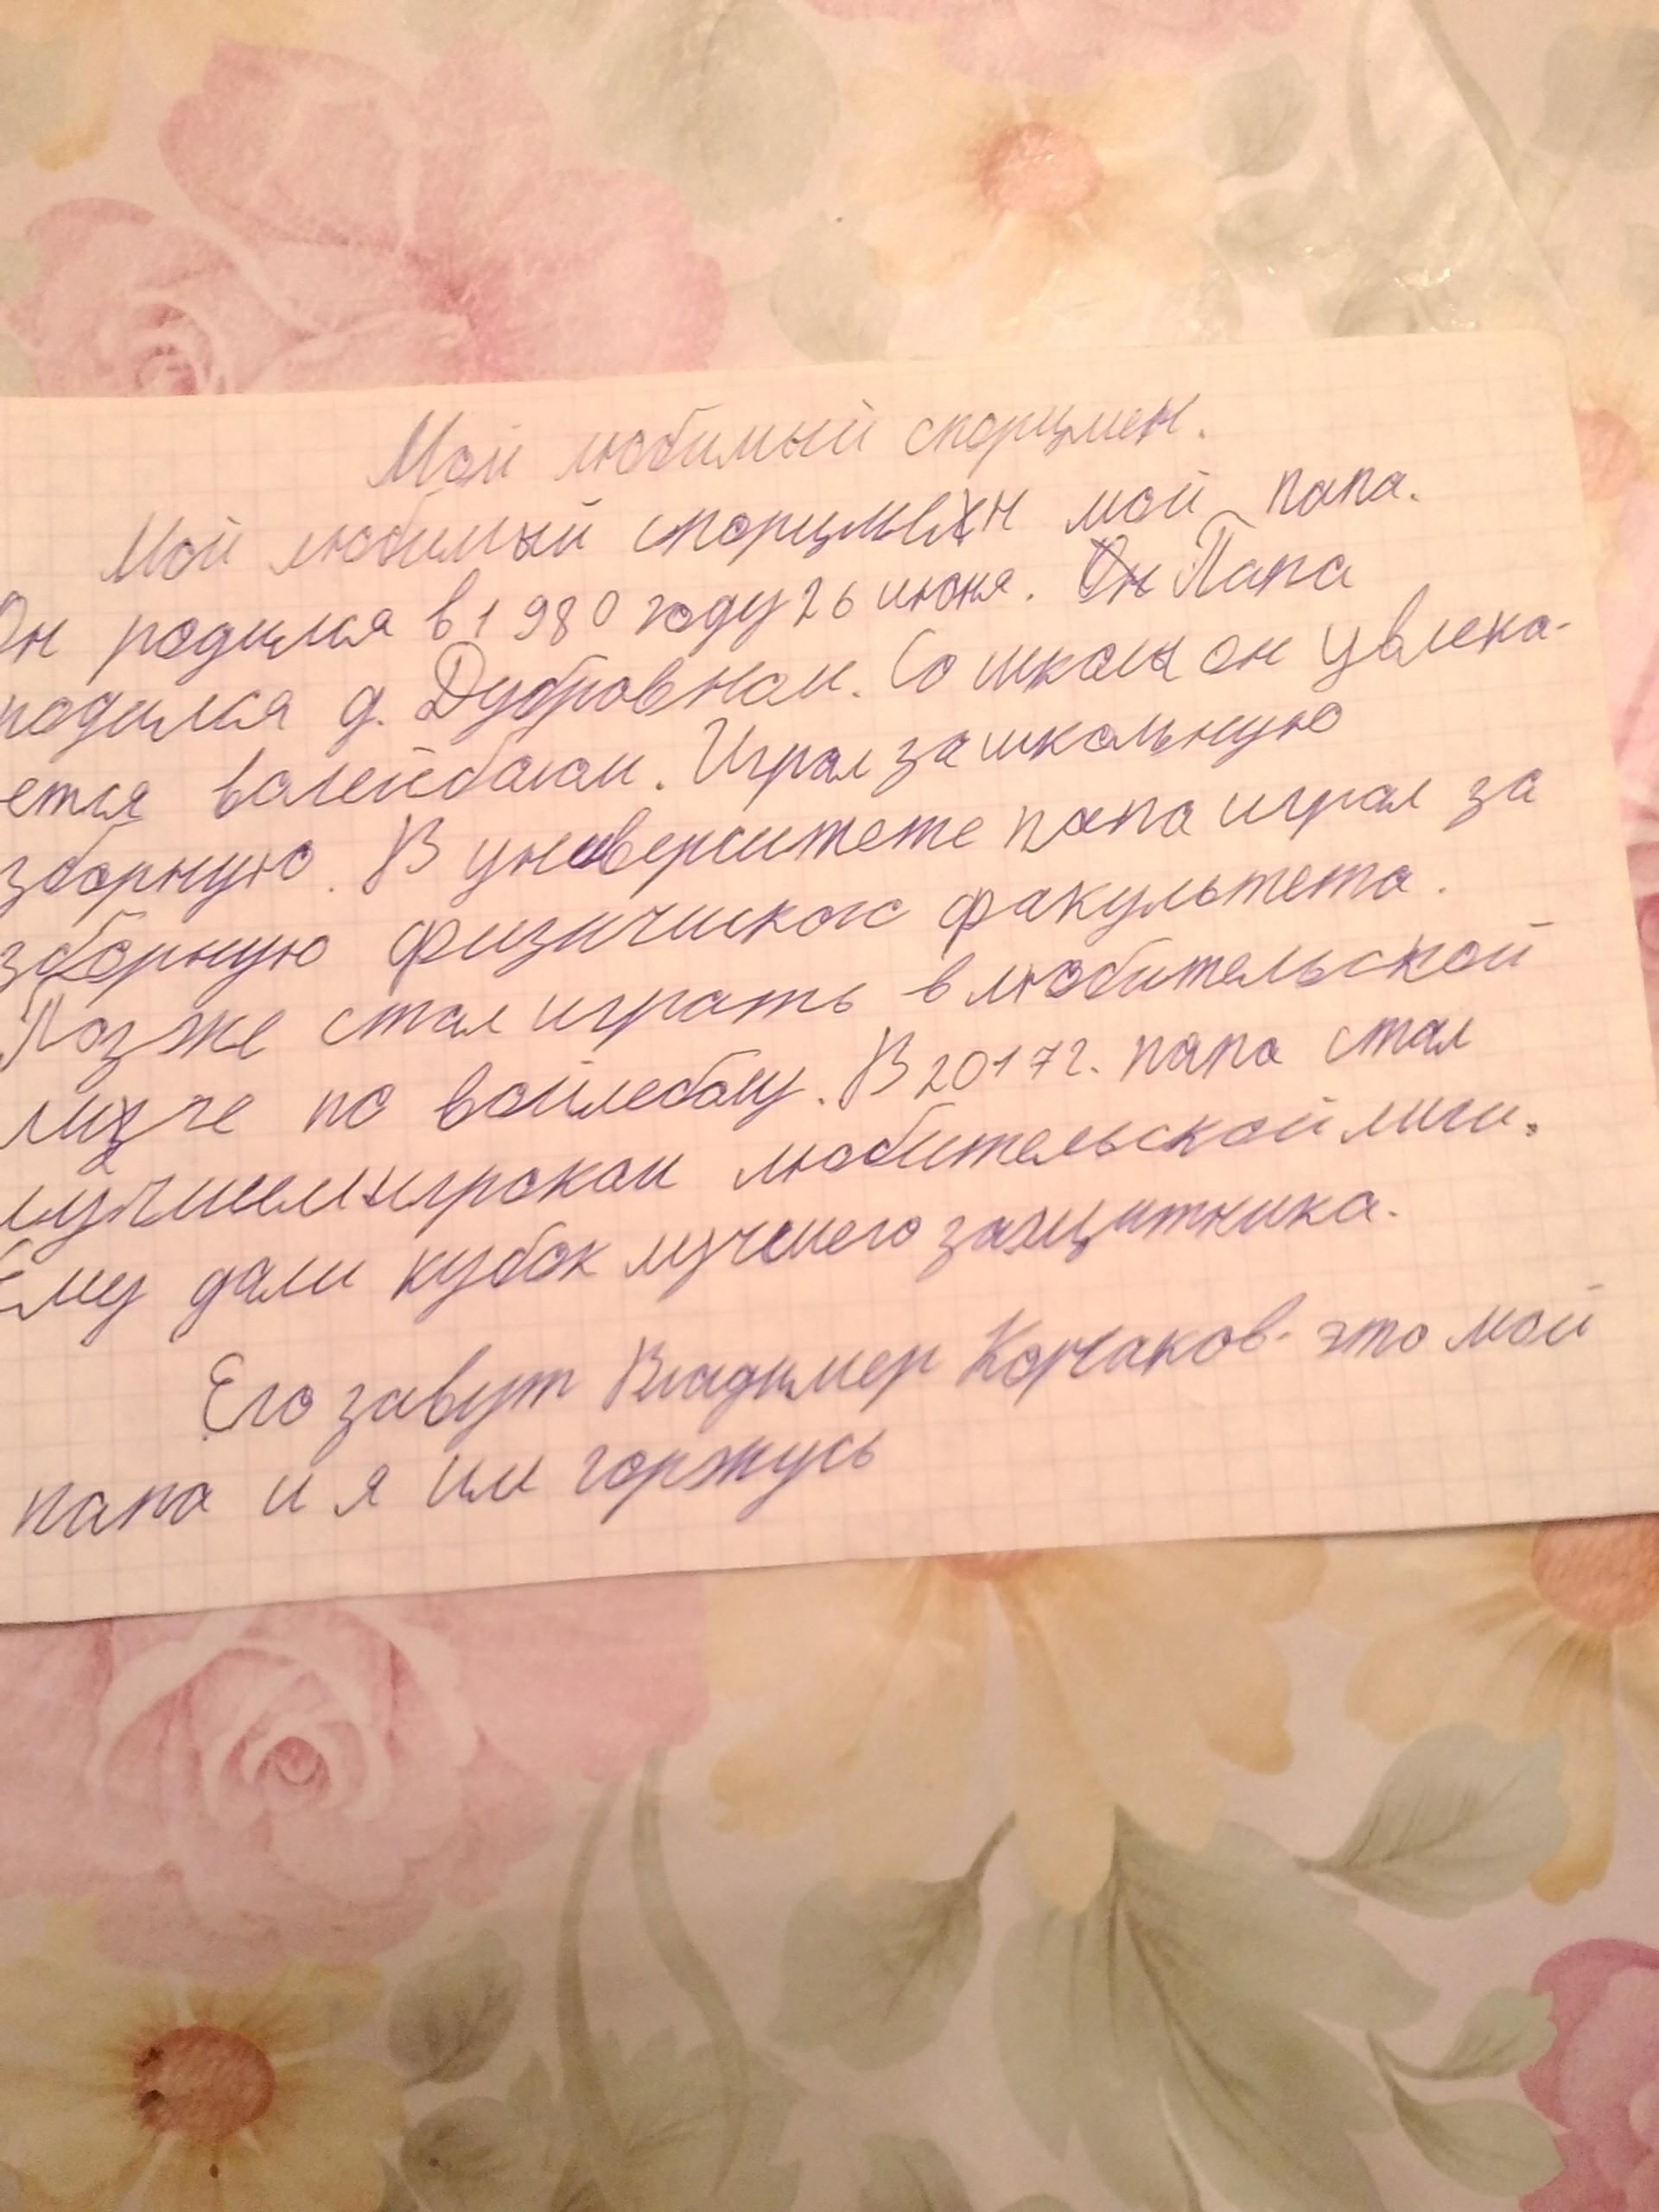 Мой любимый спорцмен.
Мой любимый спорцмен мой папа.
Он родился в 1980 году 26 июня. Папа
родился д. Дубровном. Со школы он увлека-
ется валейболом. Играл за школьную
зборную. В университете папа играл за
зборную физичиског факультета.
Позже стал играть в любительской
лиге по войлеболу. В 2017 г. папа стал
лучшем игроком любительской лиги.
Ему дали кубок лучшего защитника.
Его завут Владимер Корчаков - это мой
папа и я им горжусь